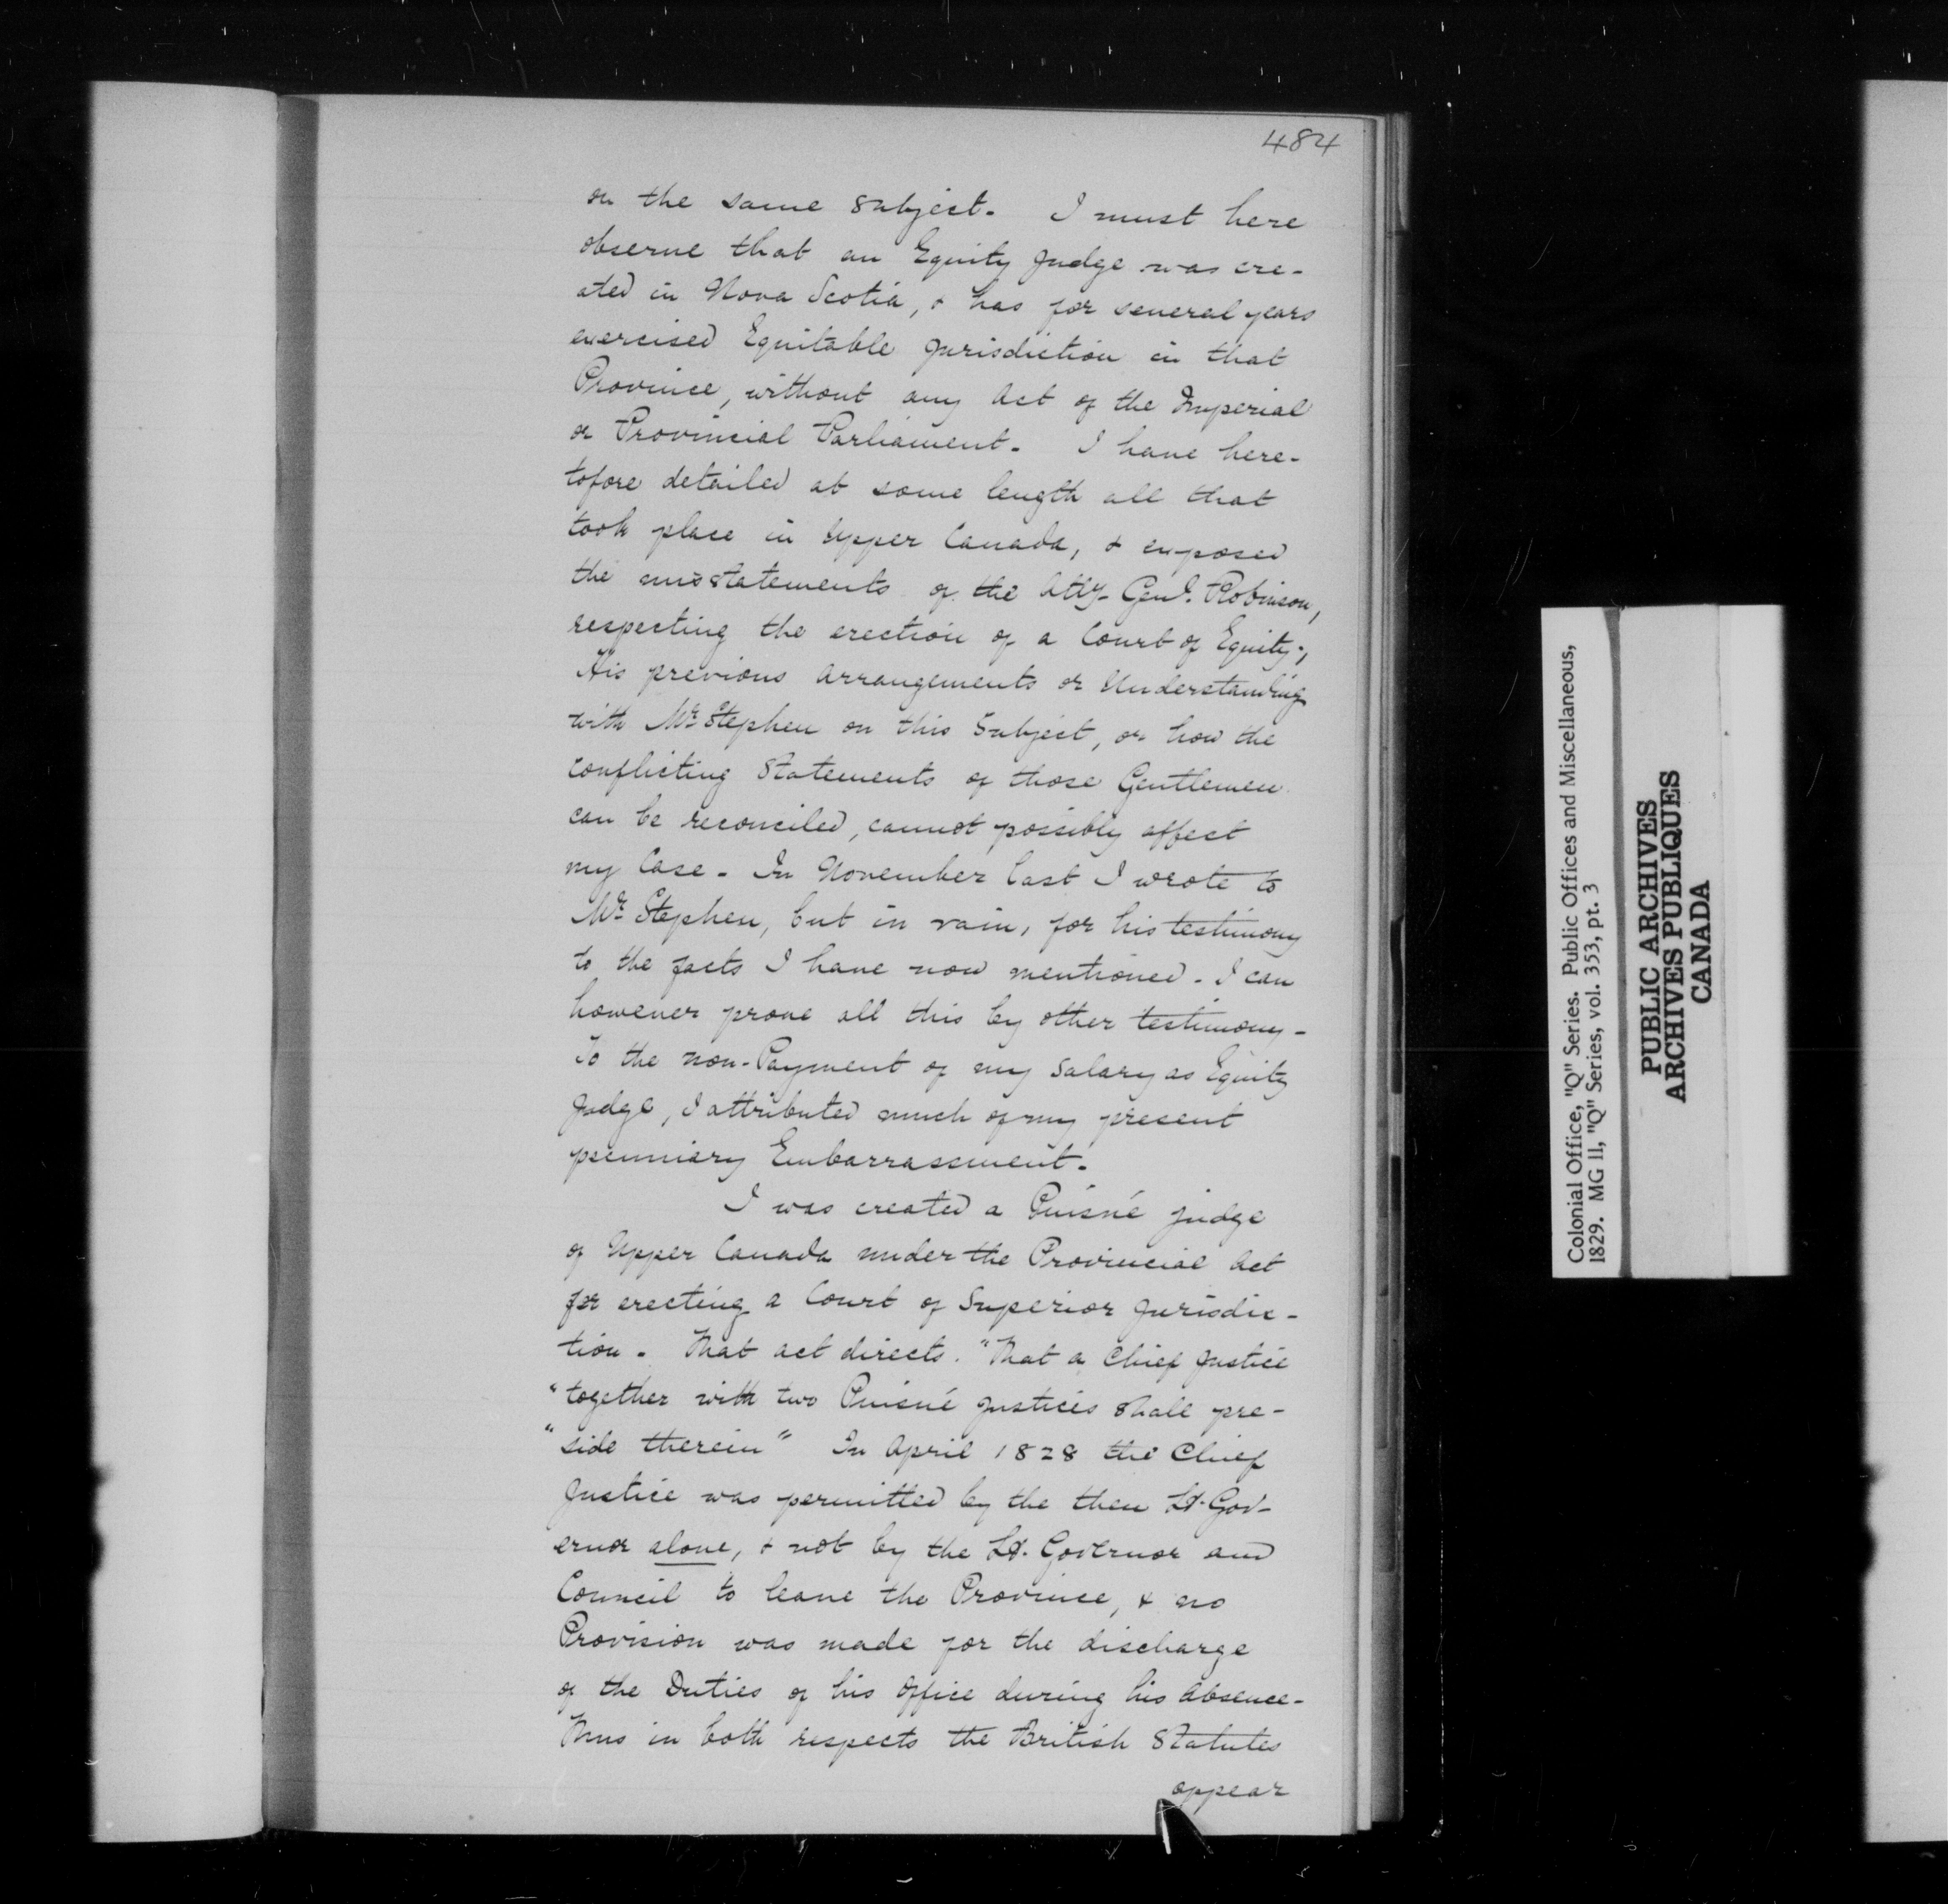 484
on the same subject. I must here
observe that an Equity Judge was cre-
ated in Nova Scotia, & has for several years
exercised Equitable Jurisdiction in that
Province, without any Act of the Imperial
or Provincial Parliament. I have here-
tofore detailed at some length all that
took place in Upper Canada, & exposed
the misstatements of the Atty. Genl. Robinson,
respecting the erection of a Court of Equity;
His previous arrangements or Understanding
with Mr. Stephen on this Subject, or how the
conflicting Statements of those Gentlemen
can be reconciled, cannot possibly affect
my Case. In November last I wrote to
Mr. Stephen, but in vain, for his testimony
to the facts I have now mentioned. I can
however prove all this by other testimony -
To the non-Payment of my Salary as Equity
Judge, I attributed much of my present
pecuniary Embarrassment.
I was created a Puisné judge
of Upper Canada under the Provincial Act
for erecting a Court of Superior Jurisdic-
tion. That act directs. "That a Chief Justice
"together with two Puisné Justices shall pre-
"side therein" In April 1828 the Chief
Justice was permitted by the then Lt. Gov-
ernor alone, & not by the Lt. Governor and
Council to leave the Province, & no
Provision was made for the discharge
of the Duties of his Office during his Absence -
Thus in both respects the British Statutes
appear
Colonial Office, "Q" Series. Public Offices and Miscellaneous,
1829. MG 11, "Q" Series, vol. 353, pt. 3
PUBLIC ARCHIVES
ARCHIVES PUBLIQUES
CANADA